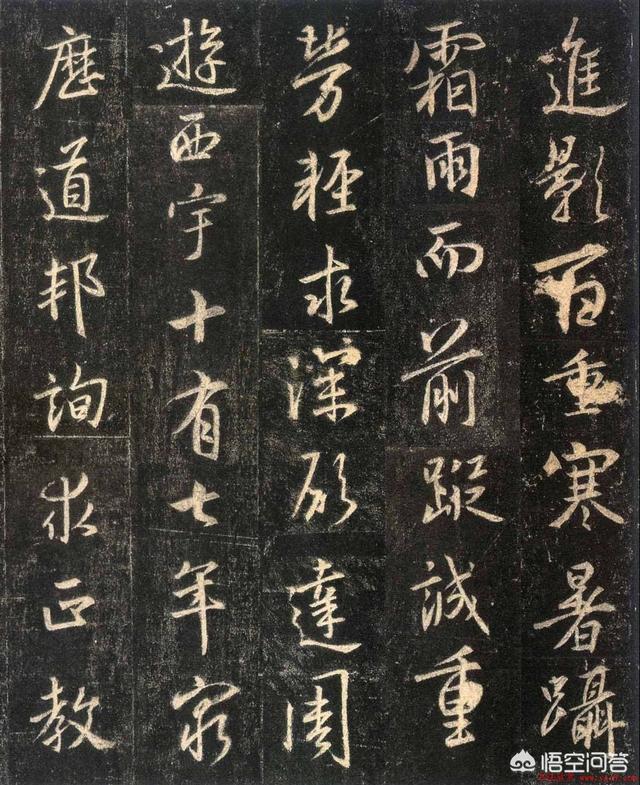 進影百重寒暑躡
霜雨而前蹤誠重
勞輕求深願達周
遊西宇十有七年窮
歷道邦詢求正教
悟空问答